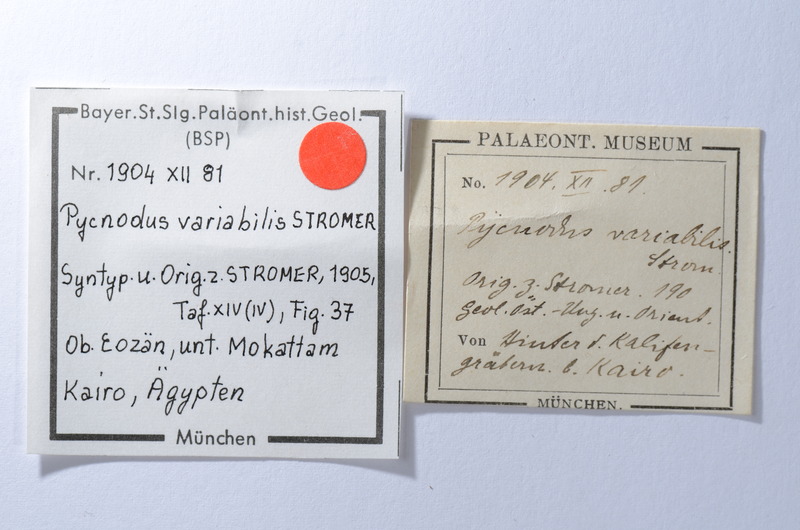 Bayer.St.Slg.Paläont.hist.Geol.
(BSP)
Nr. 1904 XII 81
Pycnodus variabilis STROMER
Syntyp. u. Orig. z. STROMER, 1905,
Taf. XIV (IV), Fig. 37
Ob. Eozän, unt. Mokattam
Kairo, Ägypten
München
PALAEONT. MUSEUM
No. 1904. XII. 81.
Pycnodus variabilis.
Strom.
Orig. z. Stromer. 190
Geol. Öst.-Ung. u. Orient.
Von Hinter d. Kalifen-
gräbern. b. Kairo.
MÜNCHEN.